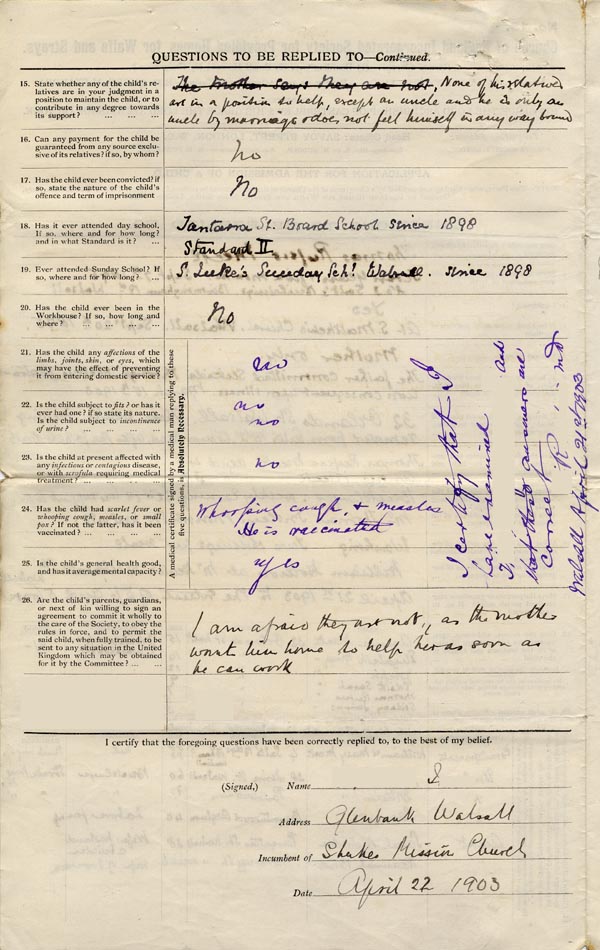 QUESTIONS TO BE REPLIED TO—Continued.
15. State whether any of the child's re-
latives are in your judgment in a
position to maintain the child, or to
contribute in any degree towards
its support? ... ... ...
The mother says they are not, None of his relatives
are in a position to help, except an uncle and he is only an
uncle by marriage & does not feel himself in any way bound
16. Can any payment for the child be
guaranteed from any source exclu-
sive of its relatives? if so, by whom?
No
17. Has the child ever been convicted? if
so, state the nature of the child's
offence and term of imprisonment
No
18. Has it ever attended day school,
If so, where and for how long?
and in what Standard is it? ...
Tantarra St. Board School since 1898
Standard II
19. Ever attended Sunday School? If
so, where and for how long? ...
S. Luke's Sunday Sch! Walsall. since 1898
20. Has the child ever been in the
Workhouse? If so, how long and
where? ... ... ... ...
No
A medical certificate signed by a medical man replying to these
five questions, is Absolutely Necessary.
21. Has the child any affections of the
limbs, joints, skin, or eyes, which
may have the effect of preventing
it from entering domestic service?
no
22. Is the child subject to fits? or has it
ever had one? if so state its nature.
Is the child subject to incontinence
of urine? ... ... ... ...
no
no
23. Is the child at present affected with
any infectious or contagious disease,
or with scrofula requiring medical
treatment? ... ... ... ...
no
24. Has the child had scarlet fever or
whooping cough, measles, or small
pox? If not the latter, has it been
vaccinated? ... ... ... ...
Whooping cough, & measles
He is vaccinated
25. Is the child's general health good,
and has it average mental capacity?
yes
I certify that I
have examined
T. and
that these answers are
correct
R M.D
Walsall April 21st 1903
26. Are the child's parents, guardians,
or next of kin willing to sign an
agreement to commit it wholly to
the care of the Society, to obey the
rules in force, and to permit the
said child, when fully trained, to be
sent to any situation in the United
Kingdom which may be obtained
for it by the Committee? ... ...
I am afraid they are not, as the mother
wants him home to help her as soon as
he can work
I certify that the foregoing questions have been correctly replied to, to the best of my belief.
(Signed,) Name
Address Glenbank Walsall
Incumbent of S Lukes Mission Church
Date April 22 1903